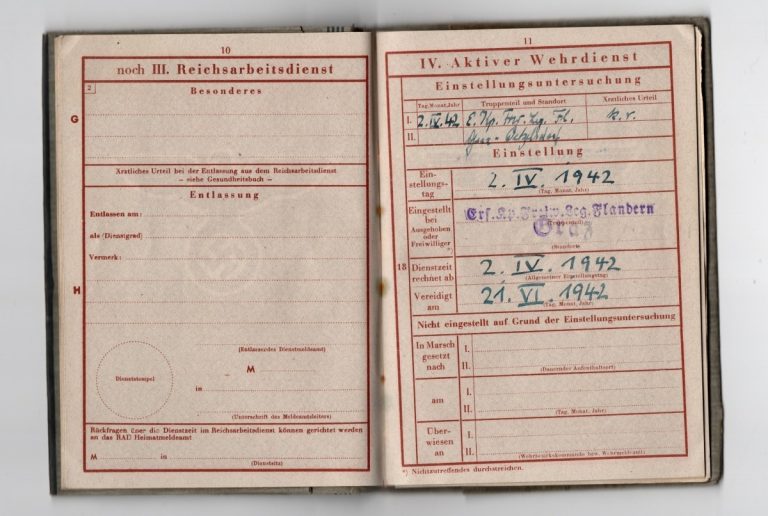 10
noch III. Reichsarbeitsdienst
2
Besonderes
G
Ärztliches Urteil bei der Entlassung aus dem Reichsarbeitsdienst
– siehe Gesundheitsbuch –
Entlassung
Entlassen am:
als (Dienstgrad)
Vermerk:
H
(Entlassendes Dienstmeldeamt)
M
Dienststempel
in
(Unterschrift des Meldeamtsleiters)
Rückfragen über die Dienstzeit im Reichsarbeitsdienst können gerichtet werden
an das RAD Heimatmeldeamt
M in
(Dienstsitz)
11
IV. Aktiver Wehrdienst
Einstellungsuntersuchung
Tag, Monat, Jahr Truppenteil und Standort Ärztliches Urteil
I. 2.IV.42 E. Kp. Frw. Leg. Fl. k.v.
II. Graz
Einstellung
Ein-
stellungs-
tag
2. IV. 1942
(Tag, Monat, Jahr)
Eingestellt
bei
Ausgehoben
oder
Freiwilliger
*)
Ers.Kp.Freiw.Leg.Flandern
(Truppenteil)
Graz
(Standort)
18
Dienstzeit
rechnet ab
2. IV. 1942
(Allgemeiner Einstellungstag)
Vereidigt
am
21. VI. 1942
(Tag, Monat, Jahr)
Nicht eingestellt auf Grund der Einstellungsuntersuchung
In Marsch
gesetzt
nach
I.
II.
(Dauernder Aufenthaltsort)
am
I.
II.
(Tag, Monat, Jahr)
Über-
wiesen
an
I.
II.
(Wehrbezirkskommando bzw. Wehrmeldeamt)
*) Nichtzutreffendes durchstreichen.